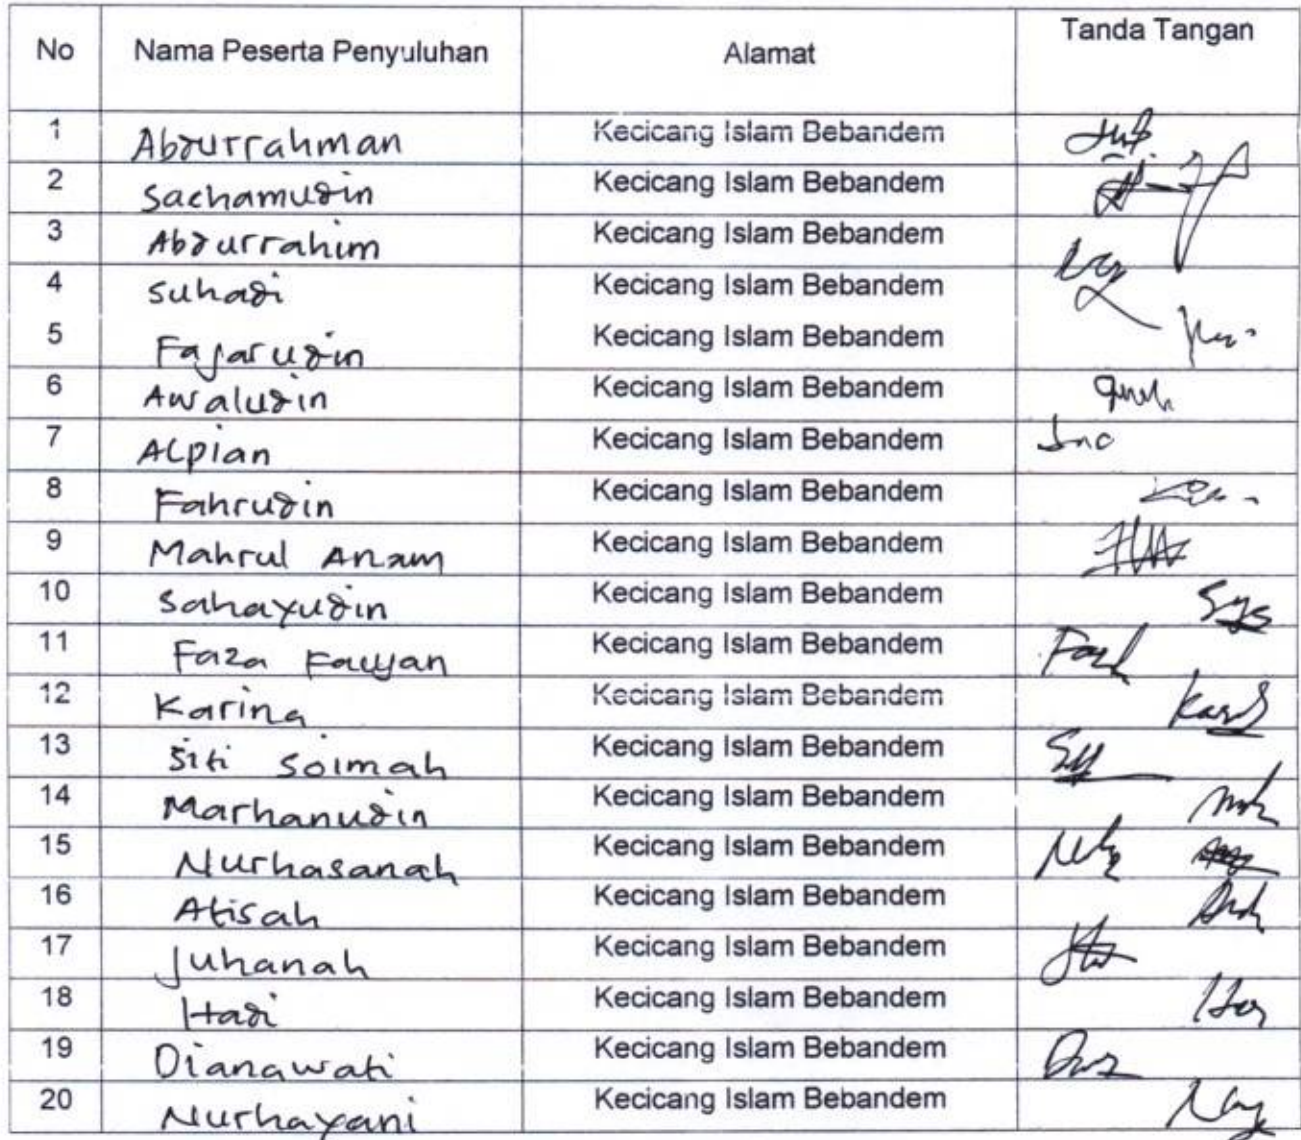 No Nama Peserta Penyuluhan Alamat Tanda Tangan
1 Abdurrahman Kecicang Islam Bebandem
2 Sachamudin Kecicang Islam Bebandem
3 Abdurrahim Kecicang Islam Bebandem
4 Suhadi Kecicang Islam Bebandem
5 Fajarudin Kecicang Islam Bebandem
6 Awaludin Kecicang Islam Bebandem
7 Alpian Kecicang Islam Bebandem
8 Fahrudin Kecicang Islam Bebandem
9 Mahrul Anam Kecicang Islam Bebandem
10 Sahayudin Kecicang Islam Bebandem
11 Faza Kecicang Islam Bebandem
12 Karina Kecicang Islam Bebandem
13 Siti Soimah Kecicang Islam Bebandem
14 Marhanudin Kecicang Islam Bebandem
15 Nurhasanah Kecicang Islam Bebandem
16 Atisah Kecicang Islam Bebandem
17 Juhanah Kecicang Islam Bebandem
18 Hadi Kecicang Islam Bebandem
19 Dianawati Kecicang Islam Bebandem
20 Nurhayani Kecicang Islam Bebandem